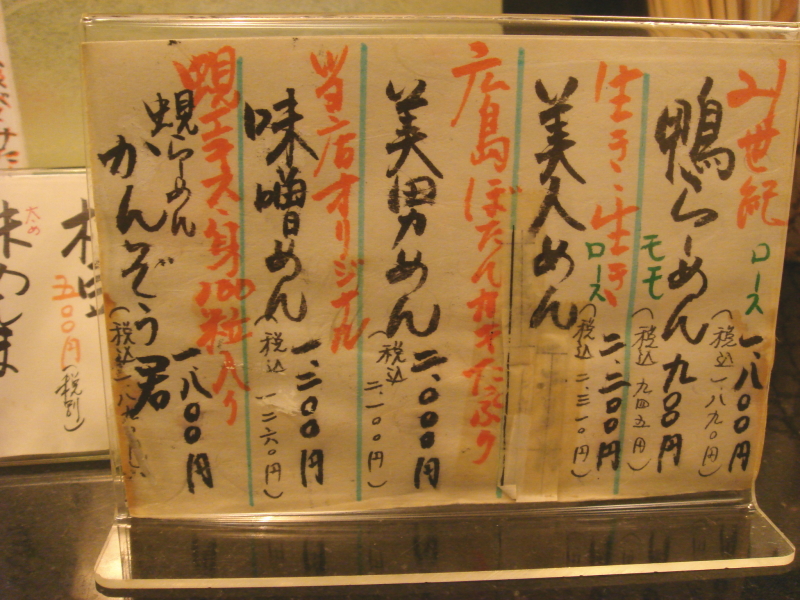 21世紀
ロース 一、八〇〇円
(税込 一、八九〇円)
鴨らーめん 九〇〇円
モモ
(税込 九四五円)
生き、生き
ロース 二、二〇〇円
(税込 二、三一〇円)
美人めん
広島ぼたんカキたぷり
美男めん 二、〇〇〇円
(税込 二、一〇〇円)
当店オリジナル
味噌めん 一、二〇〇円
(税込 一二六〇円)
蜆エキス、身100粒入り
蜆らーめん 一、八〇〇円
かんぞう君
(税込 一、八九
太め
五〇〇円(税別)
味めんま